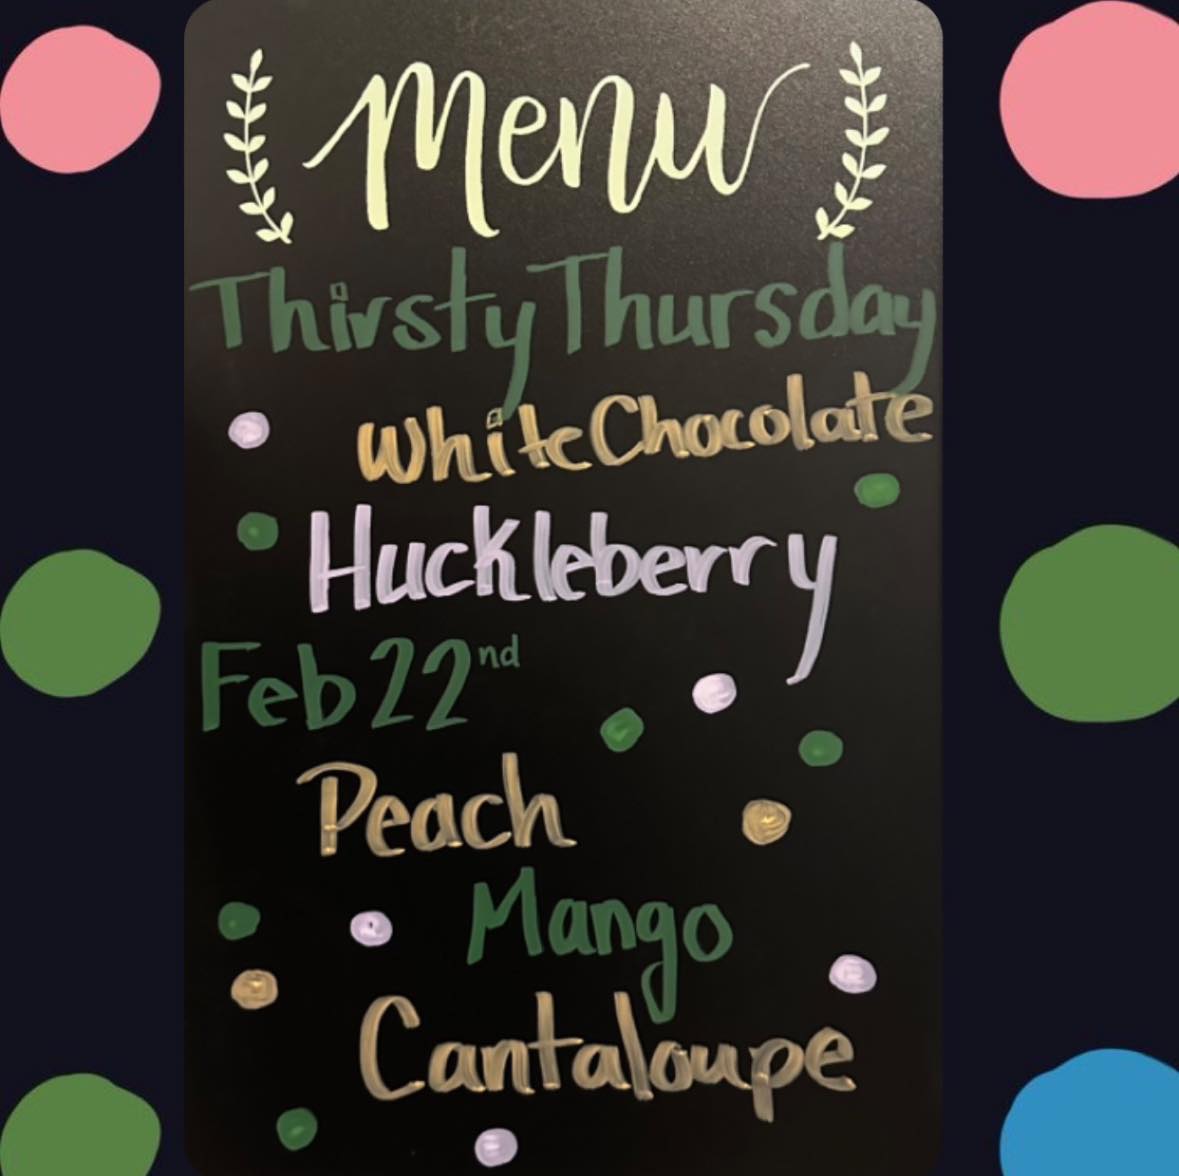 Menu
Thirsty Thursday
White Chocolate
Huckleberry
Feb 22nd
Peach
Mango
Cantaloupe